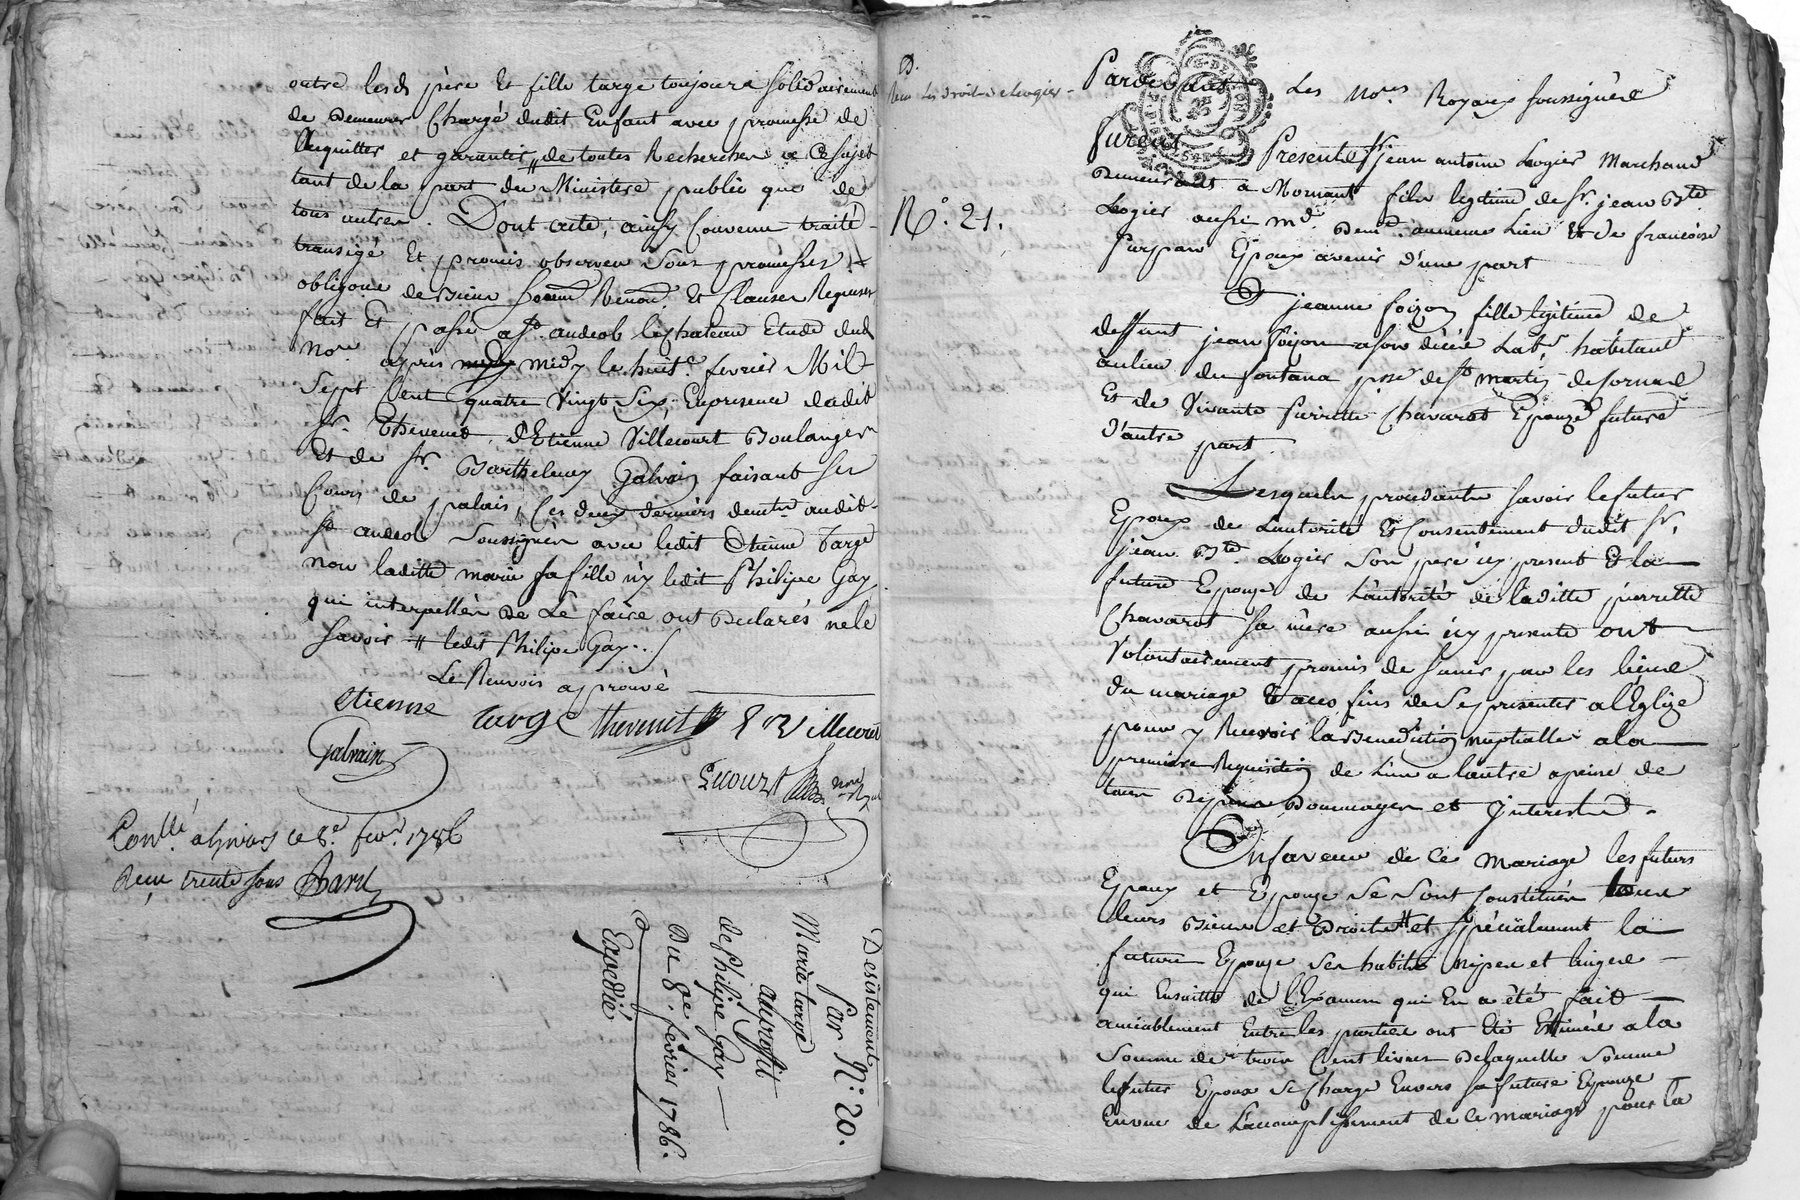 outre lesds père Et fille targe toujours solidairement
de Demeurer Chargé dudit Enfant avec promesse de
l'acquitter et garantir de toutes Recherches a ce sujet
tant de la part du Ministere public que de
tous autres. Dont acte, ainsy Convenu traité
transigé Et promis observer sous promesses
obligons de Biens Renond. Et Clauses Requises
fait Et passé a St. andeol le chateau Etude dud
Nore après midy le huite. fevrier Mil
Sept Cent quatre Vingt Six, En presence dudit
Sr. Thevenet, d'Etienne Villecourt Boulanger
Et de Sr. Barthelemy Galvain faisant ses
Cours de palais, Ces deux derniers demts audit
St. andeol Soussignés avec ledit Etienne Targe
non laditte marie sa fille n'y ledit Philipe Gay
qui interpellés De Le faire ont Declarés ne le
savoir # ledit Philipe Gay ../
Le Renvois approuvé
etienne targe thevenet E Villecourt
Galvain
Conllé a givors ce 8e. fevr. 1786
Reçu trente sous
Desistement
Par N°. 20.
Marie targe
auproffit
de Philipe Gay
Du 8e. février 1786.
Expedié
Pardevant Les Nores Royaux soussignés
N°. 21.
furent Présents Sr. jean antoine Logier Marchand
Demeurant a Mornant fils legitime de Sr. jean Bte
Logier aussi md. Demt. au meme Lieu Et de francoise
Epoux avenir d'une part
Et jeanne foizon fille légitime de
deffunt jean foizon a son décéé Labr. habitant
au lieu du fontana psse de St martin de Cornas
Et de Vivante Pierrette Chavarot Epouze future
d'autre part.
Lesquels procedants savoir le futur
Epoux de L'autorité Et Consentement dudit Sr.
jean Bte. Logier Son pere icy present Et la
future Epouze de L'autorité de laditte pierrette
Chavarot sa mère aussi icy presente ont
Volontairement promis de s'unir par les liens
du mariage Et a ces fins de Se presenter a l'Eglize
pour y Recevoir la Benediction nuptialle a la
premiere Requisition de L'un a l'autre a peine de
tous Depens Dommages et Interests.
En faveur de ce Mariage les futurs
Epoux et Epouze Se Sont Constitués tous
leurs Biens et Droits # et spécialement la
future Epouze Ses habits nipes et linges
qui Ensuitte de l'Examen qui En a été fait
amiablement Entre les parties ont Eté Estimés a la
Somme de trois Cent livres De laquelle Somme
le futur Epoux se Charge Envers sa future Epouze
Envue de L'accomplissement de ce Mariage pour la